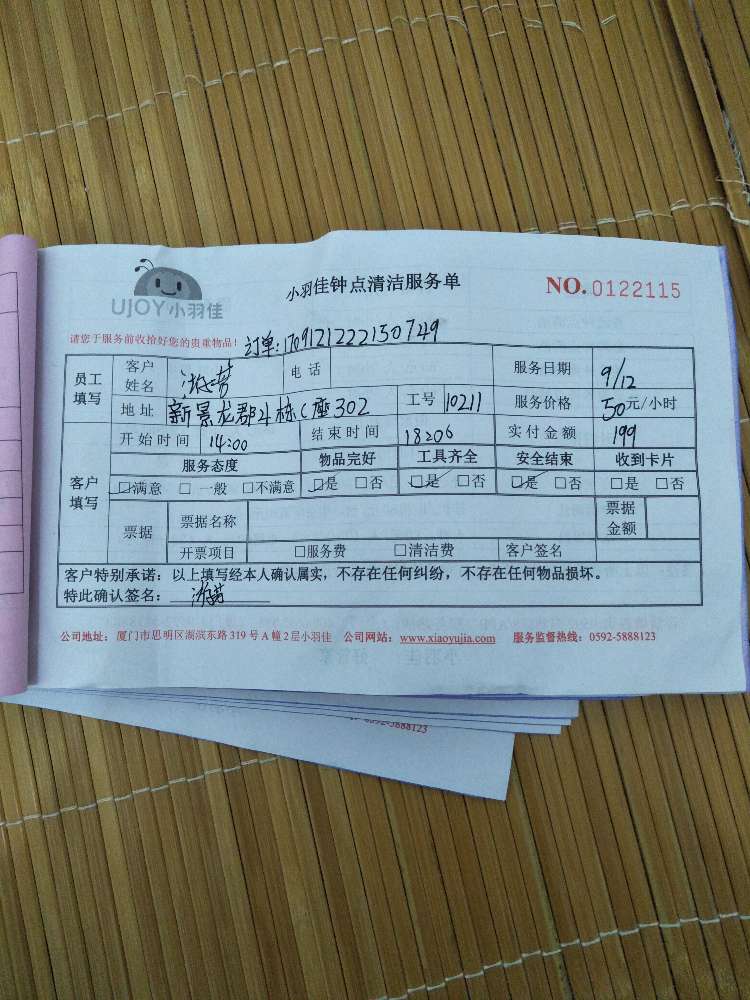 UJOY小羽佳
小羽佳钟点清洁服务单
NO.0122115
请您于服务前收拾好您的贵重物品!
订单:1709121222150749
员工填写 客户姓名 电话 服务日期 9/12
地址 新景龙郡4栋C座302 工号 10211 服务价格 50元/小时
开始时间 14:00 结束时间 18:06 实付金额 199
客户填写 服务态度 物品完好 工具齐全 安全结束 收到卡片
□满意 □一般 □不满意 □是 □否 □是 □否 □是 □否 □是 □否
票据 票据名称 票据金额
开票项目 □服务费 □清洁费 客户签名
客户特别承诺:以上填写经本人确认属实,不存在任何纠纷,不存在任何物品损坏。
特此确认签名:
公司地址:厦门市思明区湖滨东路319号A幢2层小羽佳 公司网站:www.xiaoyujia.com 服务监督热线:0592-5888123
0592-5888123